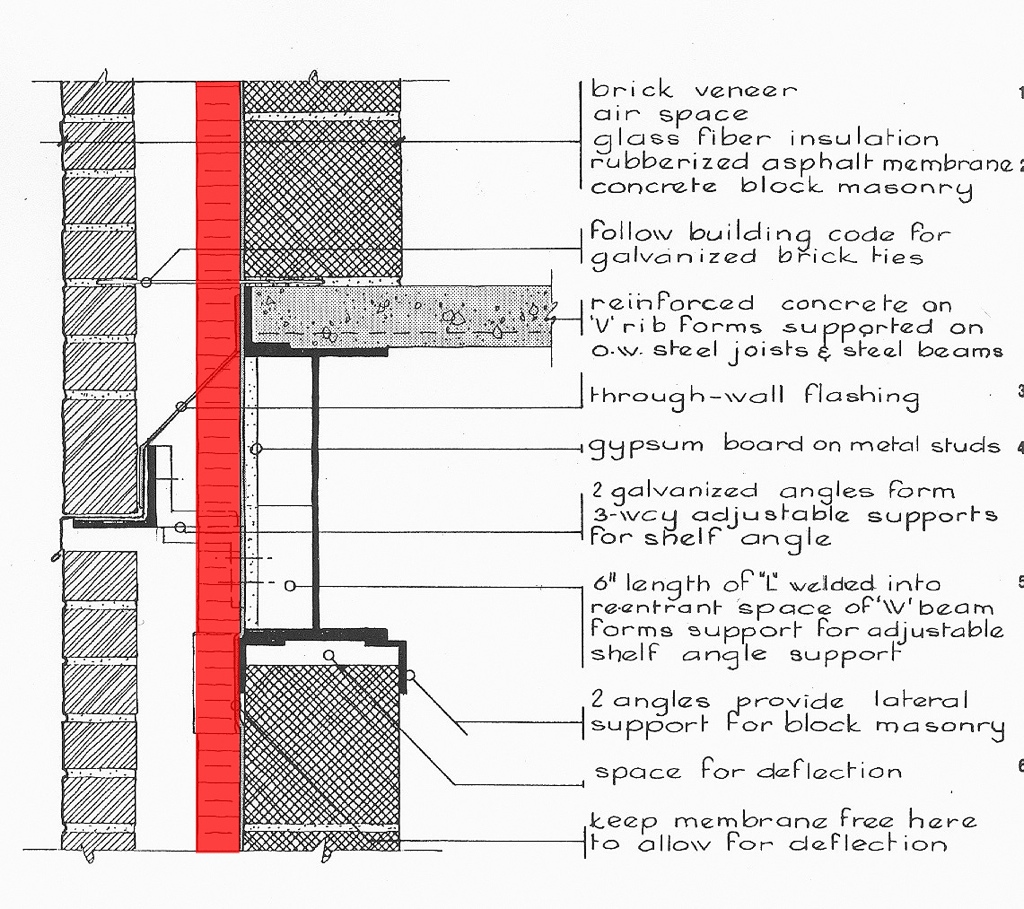 brick veneer 1
air space
glass fiber insulation
rubberized asphalt membrane 2
concrete block masonry
follow building code for
galvanized brick ties
reinforced concrete on
'V' rib forms supported on
o.w. steel joists & steel beams
through-wall flashing 3
gypsum board on metal studs 4
2 galvanized angles form
3-way adjustable supports
for shelf angle
6" length of "L" welded into 5
re-entrant space of 'W' beam
forms support for adjustable
shelf angle support
2 angles provide lateral
support for block masonry
space for deflection 6
keep membrane free here
to allow for deflection